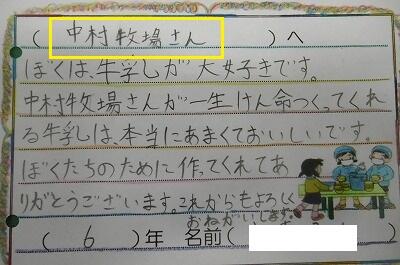 ( 中村牧場さん )へ
ぼくは、牛乳が大好きです。
中村牧場さんが一生けん命つくってくれ
る牛乳は、本当にあまくておいしいです。
ぼくたちのために作ってくれてあ
りがとうございます。これからもよろしく
おねがいします。
( 6 )年 名前(